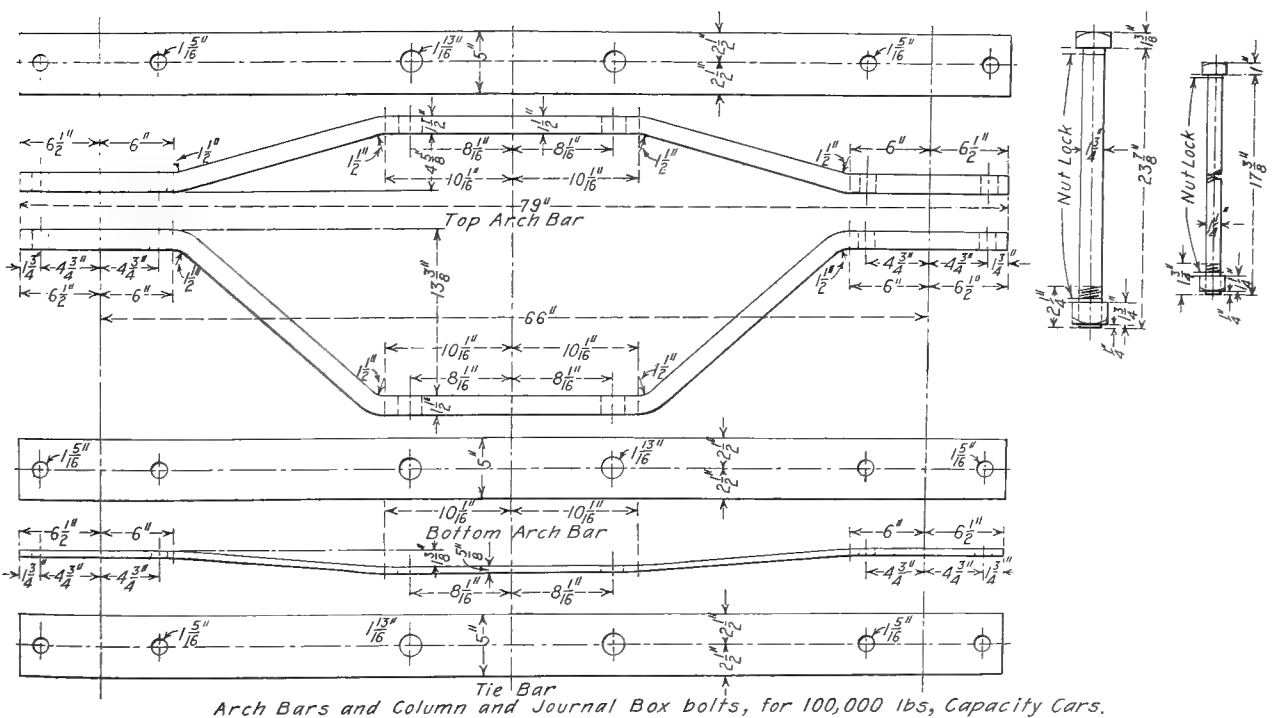 1 5/16" 1 13/16" 5" 2 1/2" 2 1/2" 1 5/16"
6 1/2" 6" 1 1/2" 1 1/2" 1 1/2" 6" 6 1/2"
1 1/2" 8 1/16" 8 1/16" 1 1/2" 1 1/2"
4 5/8" 10 1/16" 10 1/16"
79"
Top Arch Bar
1 3/4" 4 3/4" 4 3/4" 1 1/2" 13 3/8" 1 1/2" 4 3/4" 4 3/4" 1 3/4"
6 1/2" 6" 6" 6 1/2"
66"
10 1/16" 10 1/16"
1 1/2" 8 1/16" 8 1/16" 1 1/2"
1 1/2"
1 5/16" 5" 1 13/16" 2 1/2" 2 1/2" 1 5/16"
10 1/16" 10 1/16"
Bottom Arch Bar
6 1/2" 6" 6" 6 1/2"
1 3/4" 4 3/4" 4 3/4" 1 3/8" 5/8" 4 3/4" 4 3/4" 1 3/4"
8 1/16" 8 1/16"
1 5/16" 1 13/16" 5" 2 1/2" 2 1/2" 1 5/16"
Tie Bar
1 3/8"
Nut Lock
23 7/8"
2 1/4" 1 3/4"
1/4"
1"
Nut Lock
17 3/4"
1 3/4" 1 1/4"
1/4"
Arch Bars and Column and Journal Box bolts, for 100,000 lbs, Capacity Cars.